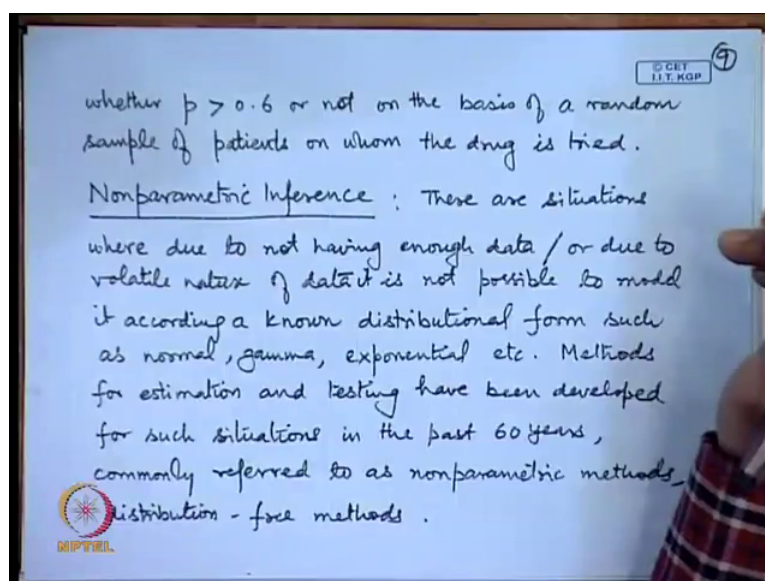 © CET
I.I.T. KGP
9
whether p > 0.6 or not on the basis of a random
sample of patients on whom the drug is tried.
Nonparametric Inference : There are situations
where due to not having enough data / or due to
volatile nature of data it is not possible to model
it according a known distributional form such
as normal, gamma, exponential etc. Methods
for estimation and testing have been developed
for such situations in the past 60 years,
commonly referred to as nonparametric methods,
distribution - free methods.
NPTEL